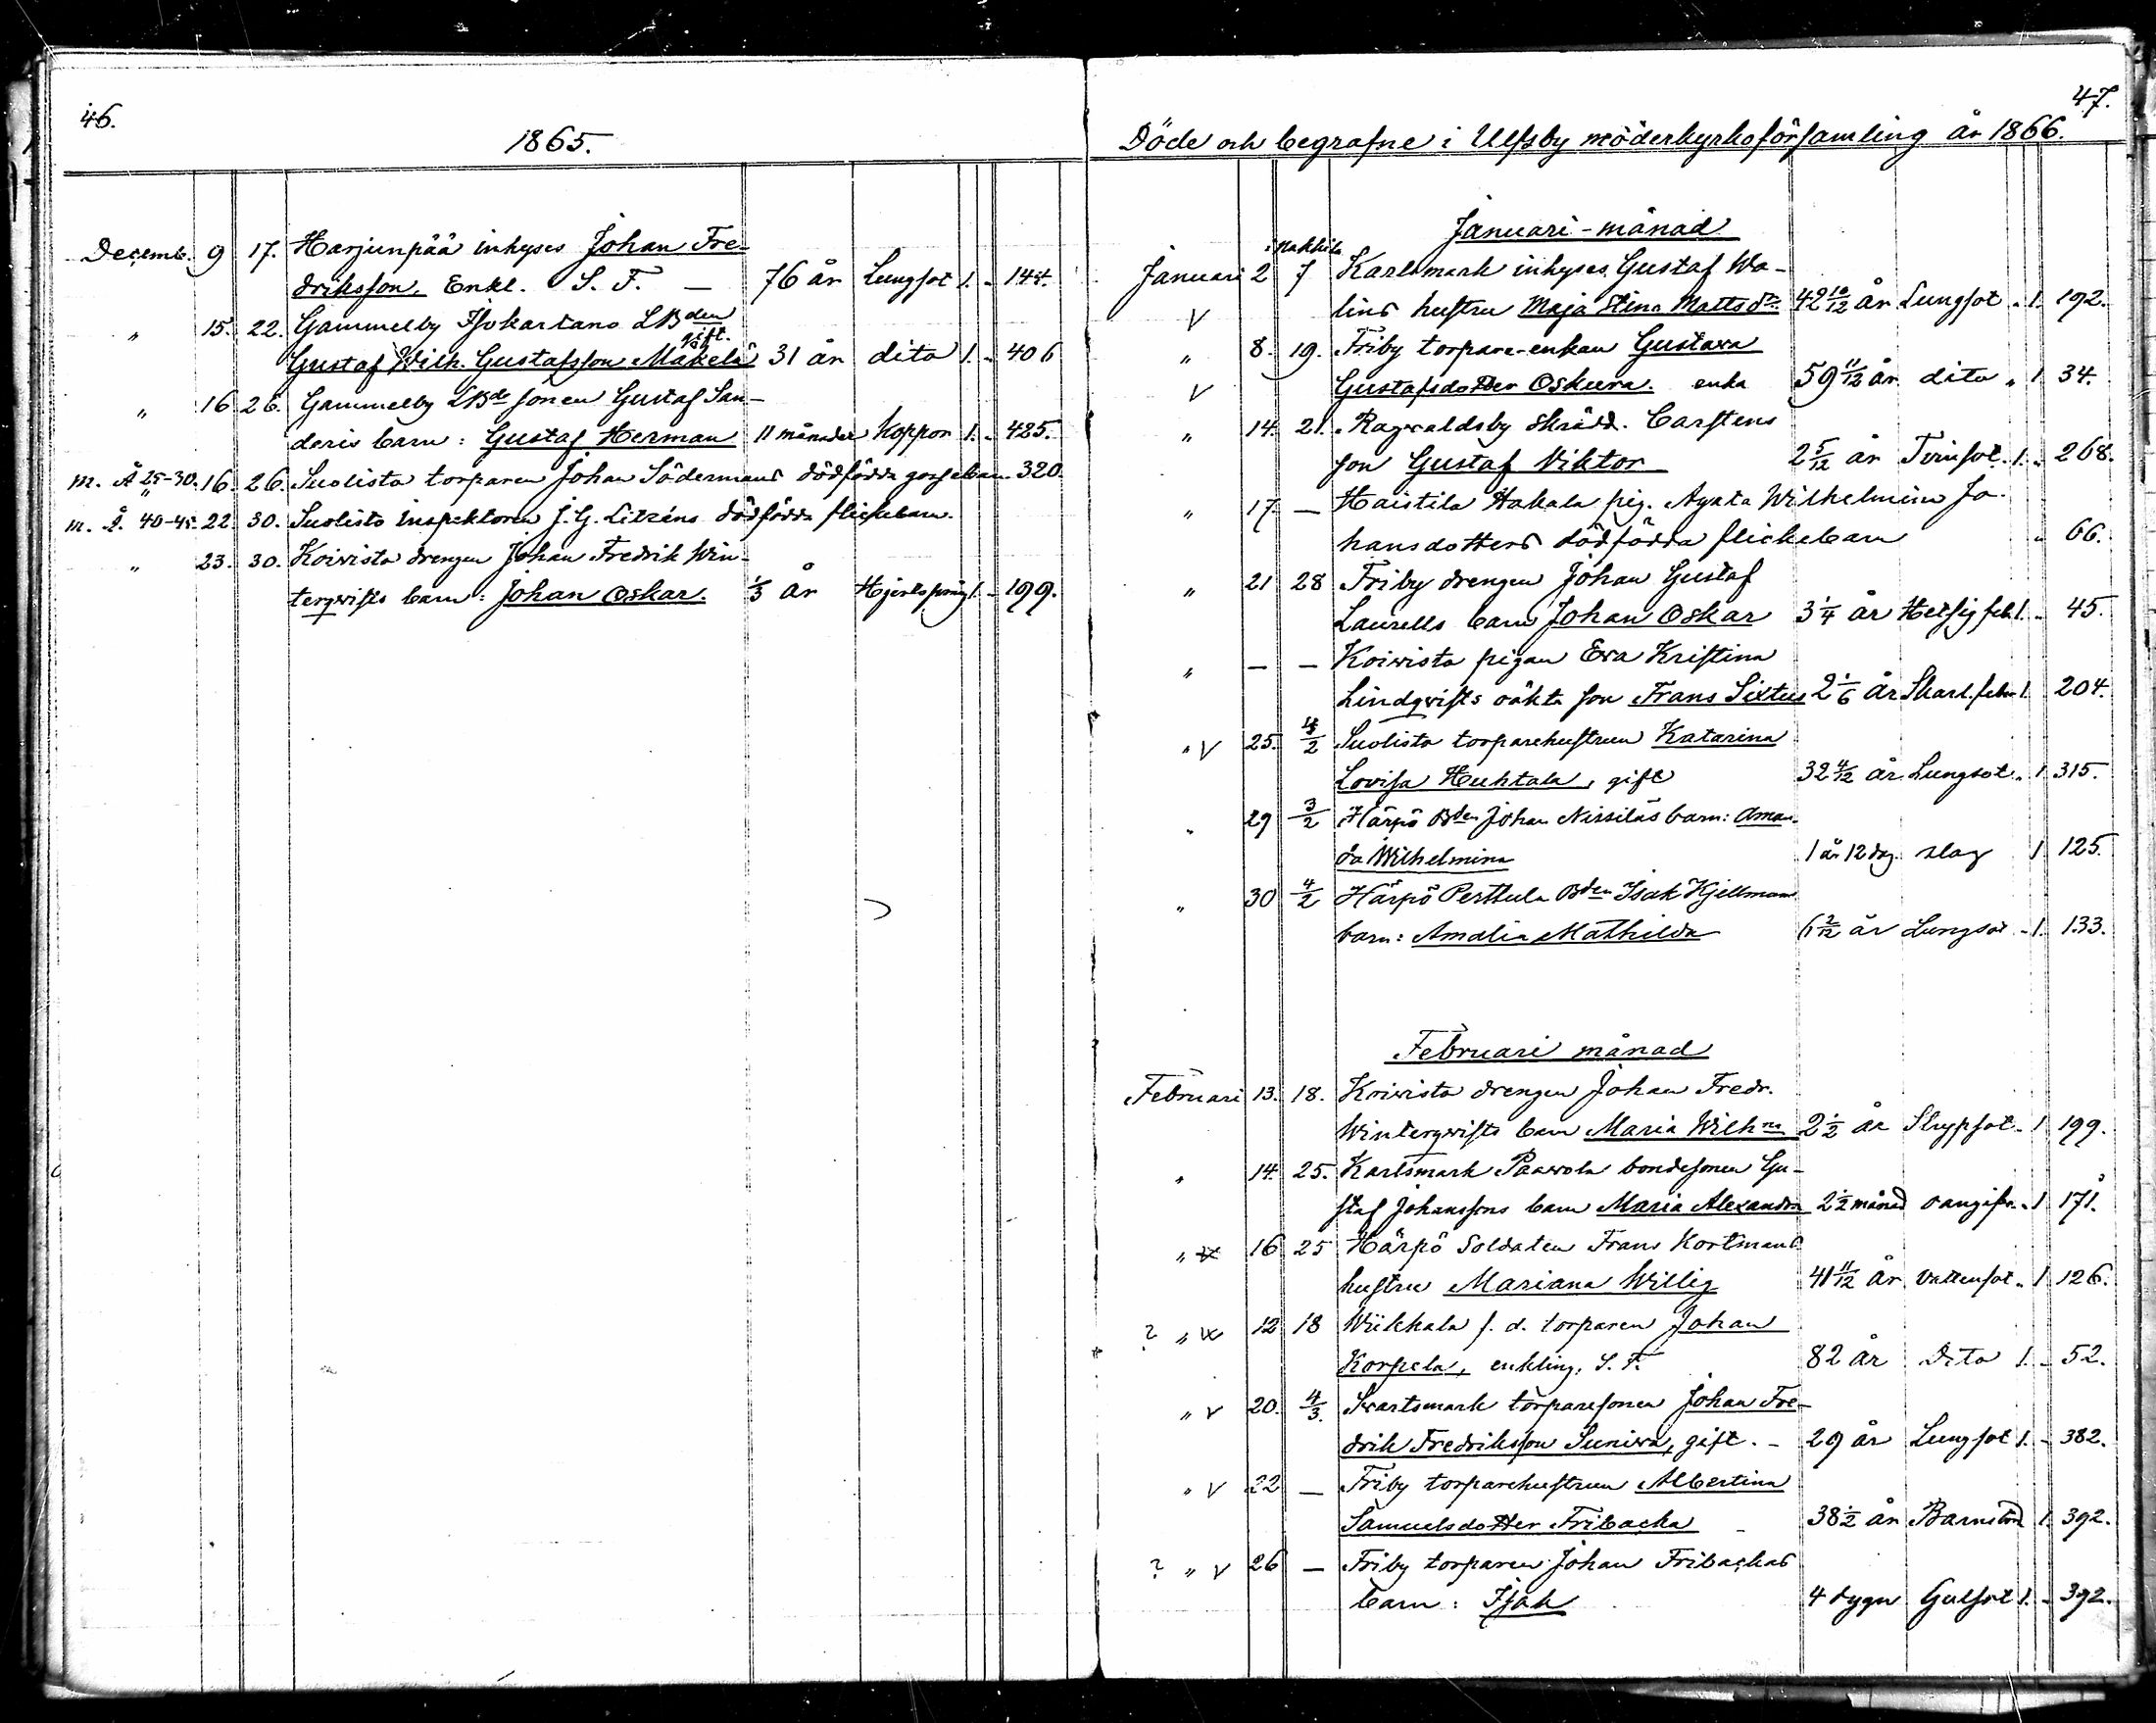 46.
1865.
Decemb. 9 17. Harjunpää inhyses Johan Fre-
driksson. Enkl. S. F. — 76 år Lungsot 1. - 144.
" 15. 22. Gammelby Isokartano LBden
gift.
Gustaf Wilh. Gustafsson Mäkelä 31 år dito 1. - 406
" 16 26. Gammelby LBde sonen Gustaf San-
deris barn: Gustaf Herman 11 månader Koppor 1. - 425.
m. Å 25-30. " 16. 26. Suolisto torparen Johan Södermans dödfödda gossebarn. 320.
m. Å. 40-45. 22. 30. Suolisto Inspektoren J. G. Litzéns dödfödda flickebarn.
" 23. 30. Koivisto drengen Johan Fredrik Win-
terqvists barn: Johan Oskar. 1/3 år Hjertspräng 1. - 199.
47.
Döde och begrafne i Ulfsby möderkyrkoförsamling år 1866.
Januari-månad
i Nakkila
Januari 2 7 Karlsmark inhyses Gustaf Wa-
V lins hustru Maja Stina Mattsdr. 42 10/12 år Lungsot " 1. 192.
" 8. 19. Friby torpare-enkan Gustava
V Gustafsdotter Oskura. enka 59 11/12 år dito " 1 34.
" 14. 21. Ragvaldsby skrädd. Carstens
son Gustaf Viktor 2 5/12 år Tvinsot. 1. " 268.
" 17. — Haistila Hakala pig. Agata Wilhelmina Jo-
hansdotters dödfödda flickebarn " 66.
" 21 28 Friby drengen Johan Gustaf
Laurells barn Johan Oskar 3 1/4 år Hetsig feb. 1. - 45.
" — — Koivisto pigan Eva Kristina
Lindqvists oäkta son Frans Sixtus 2 1/6 år Skarl. feber 1. 204.
" V 25. 4/2 Suolisto torparehustrun Katarina
Lovisa Huhtala, gift 32 4/12 år Lungsot " 1 315.
" 29 3/2 Härpö Bden Johan Nissiläs barn: Aman-
da Wilhelmina 1 år 12 dag. slag 1 125.
" 30 4/2 Härpö Perttula Bden Isak Kjellmans
barn: Amalia Mathilda 6 2/12 år Lungsot - 1. 133.
Februari månad
Februari 13. 18. Koivisto drengen Johan Fredr.
Winterqvists barn Maria Wilhna 2 1/2 år Strypsot - 1 199.
" 14. 25. Karlsmark Paavola bondesonen Gu-
staf Johanssons barn Maria Alexandra 2 1/2 månad oangifvn. " 1 171.
" 16 25 Härpö Soldaten Frans Kortmans
hustru Mariana Willig 41 11/12 år Vattensot " 1 126.
? " 12 18 Wiikkala f. d. torparen Johan
Korpela, enkling. S. F. 82 år Dito 1. - 52.
" V 20. 4/3. Svartsmark torparesonen Johan Fre-
drik Fredriksson Suniva, gift. - 29 år Lungsot 1. - 382.
" V 22 — Friby torparehustrun Albertina
Samuelsdotter Fribacka 38 1/2 år Barnsbörd 1. 392.
? " V 26 — Friby torparen Johan Fribackas
barn: Isak 4 dygn Gulsot 1. - 392.